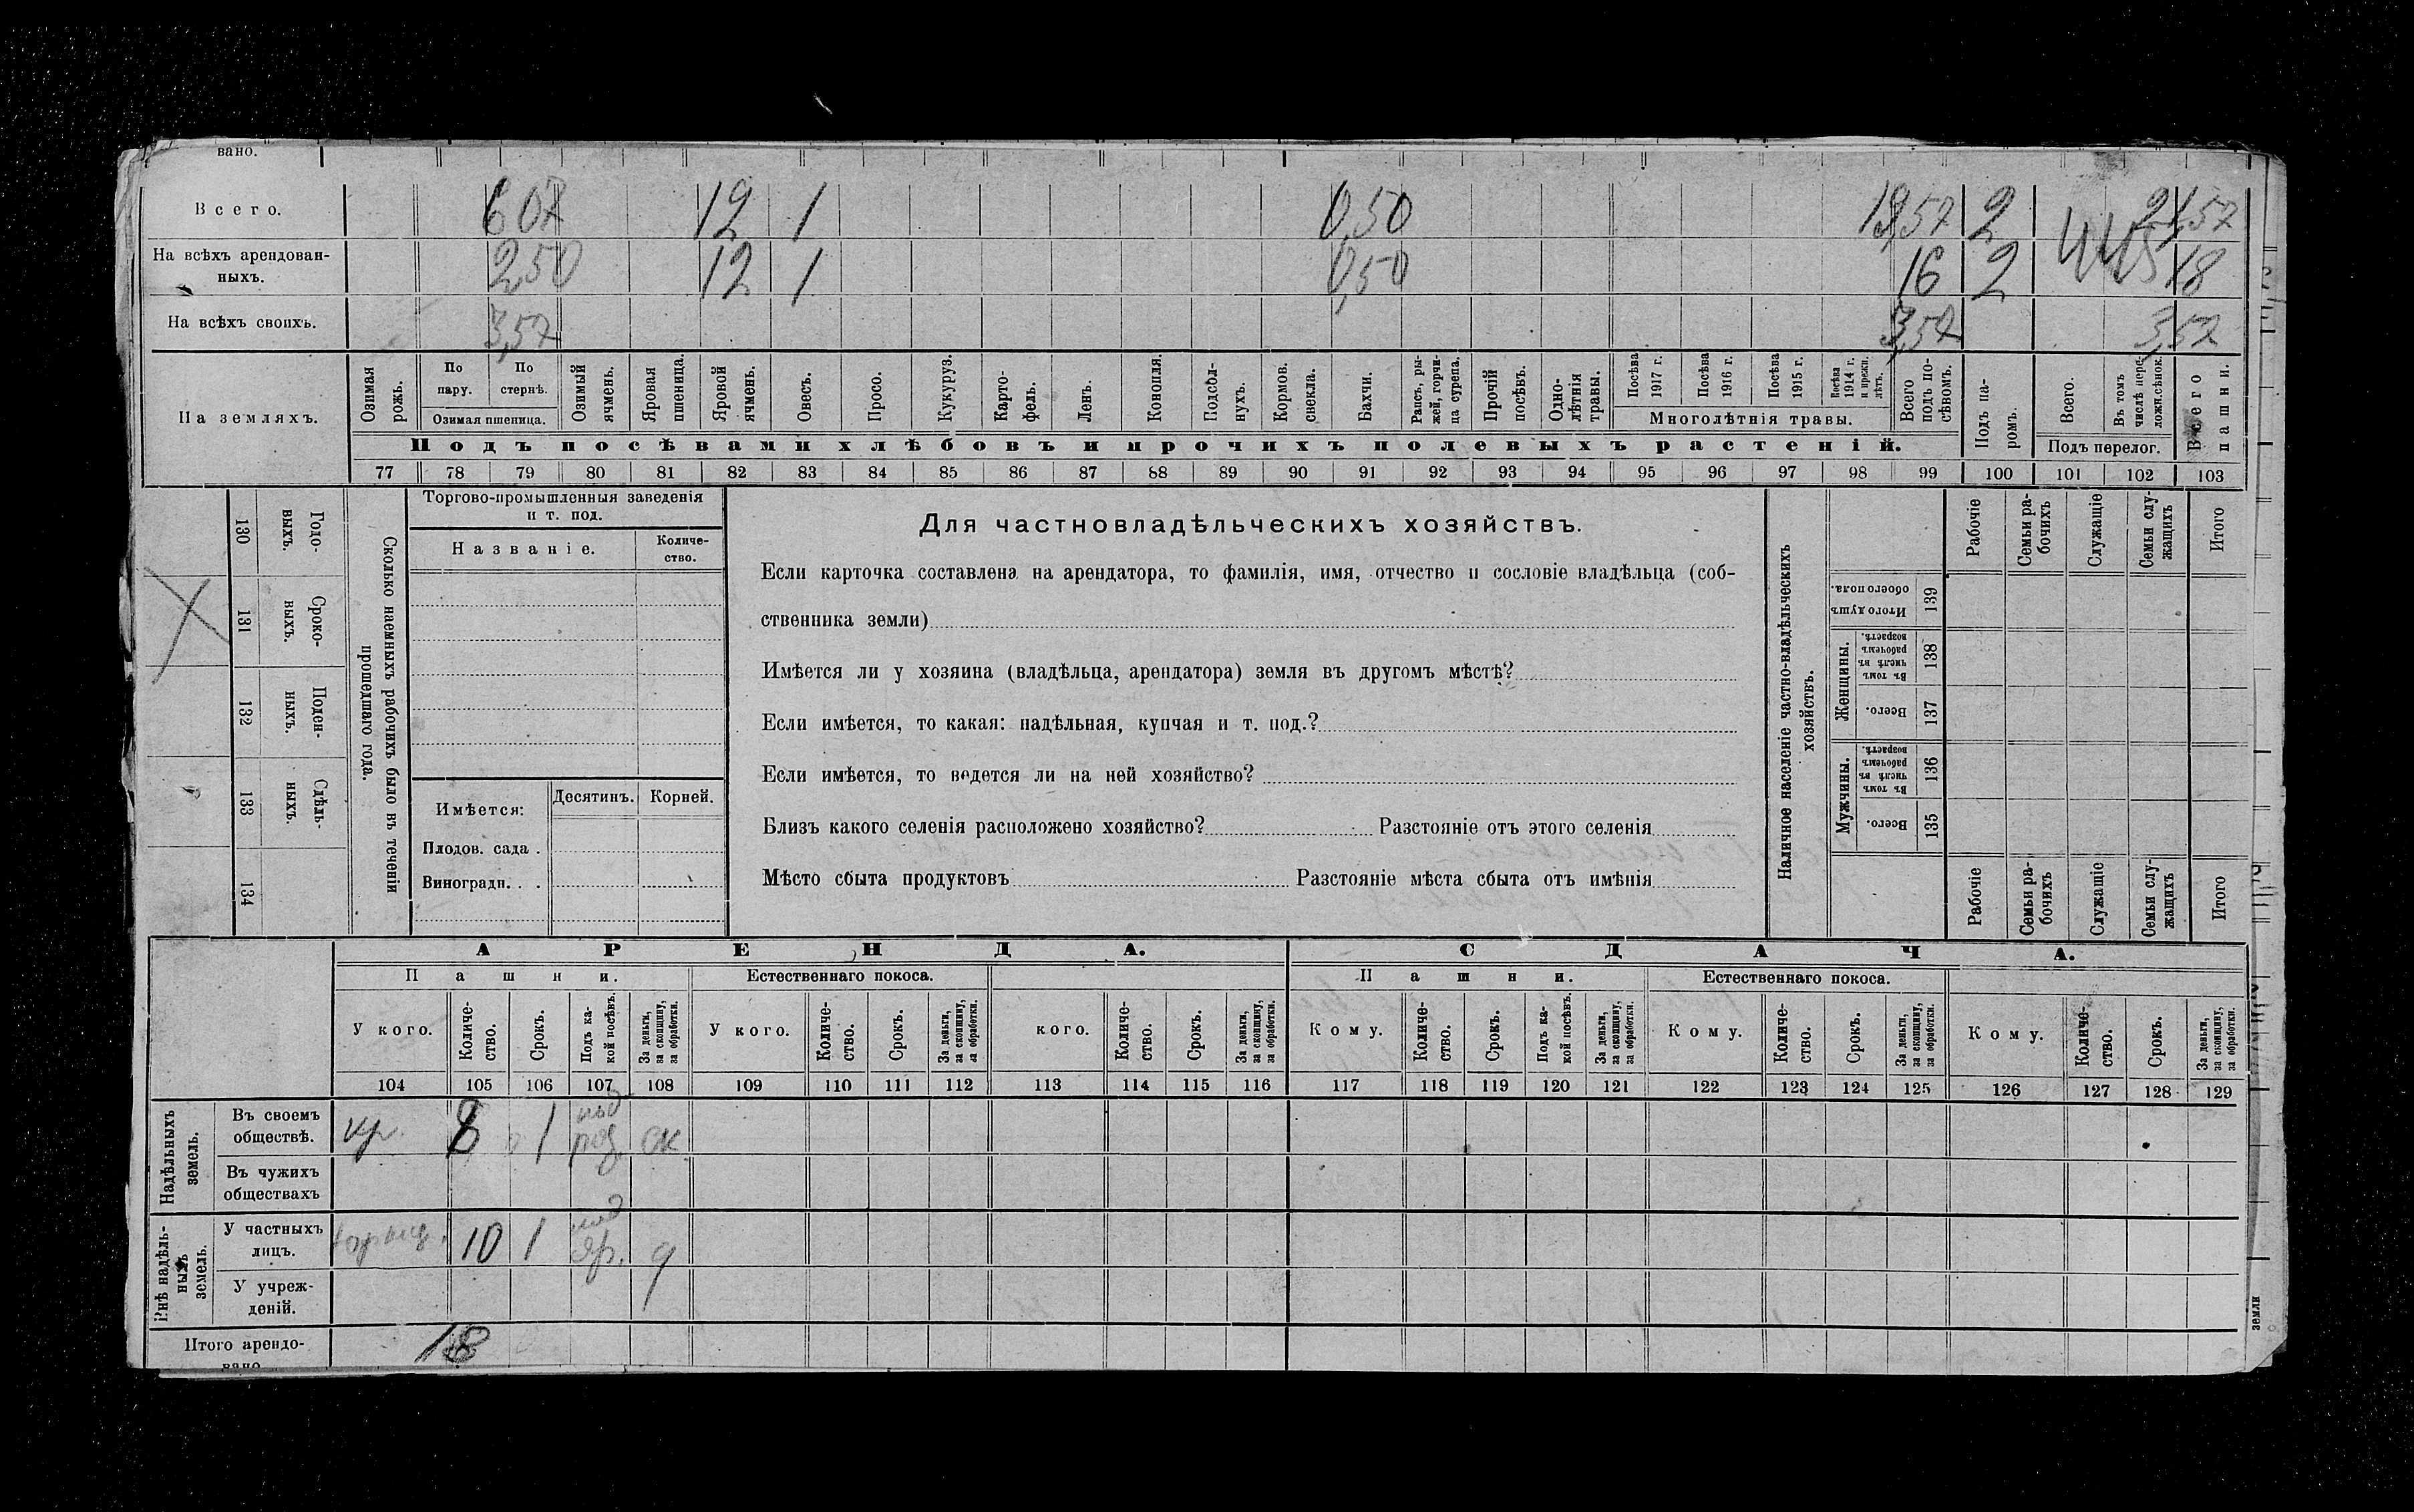 вано.
Всего. 6 07 12 1 0,50 19,57 2 21,57
На всѣхъ арендован-
ныхъ. 2,50 12 1 0,50 16 2 18
На всѣхъ своихъ. 3,57 3,57 3,57
На земляхъ.
Озимая рожь.
По пару.
По стернѣ.
Озимая пшеница.
Озимый ячмень.
Яровая пшеница.
Яровой ячмень.
Овесъ.
Просо.
Кукуруз.
Карто-
фель.
Ленъ.
Конопля.
Подсол-
нухъ.
Кормов. свекла.
Бахчи.
Рапсъ, ры-
жей, горчи-
ца сурепа.
Прочій посѣвъ.
Одно-
лѣтнія травы.
Посѣва 1917 г.
Посѣва 1916 г.
Посѣва 1915 г.
Посѣва 1914 г. и прежн. лѣтъ.
Многолѣтнія травы.
Всего подъ по-
сѣвомъ.
Подъ посѣвами хлѣбовъ и прочихъ полевыхъ растеній.
Подъ па-
ромъ.
Всего.
Въ томъ числѣ
Подъ перелог.
Всего пашни.
77 78 79 80 81 82 83 84 85 86 87 88 89 90 91 92 93 94 95 96 97 98 99 100 101 102 103
130 Годо-
выхъ.
131 Сроко-
ныхъ.
132 Поден-
ныхъ.
133 Сдѣль-
ныхъ.
134
Сколько наемныхъ рабочихъ было въ теченіи
прошедшаго года.
Торгово-промышленныя заведенія
и т. под.
Названіе.
Количе-
ство.
Имѣется:
Десятинъ. Корней.
Плодов. сада .
Виноградн. . .
Для частновладѣльческихъ хозяйствъ.
Если карточка составлена на арендатора, то фамилія, имя, отчество и сословіе владѣльца (соб-
ственника земли)
Имѣется ли у хозяина (владѣльца, арендатора) земля въ другомъ мѣстѣ?
Если имѣется, то какая: надѣльная, купчая и т. под.?
Если имѣется, то ведется ли на ней хозяйство?
Близъ какого селенія расположено хозяйство? Разстояніе отъ этого селенія
Мѣсто сбыта продуктовъ Разстояніе мѣста сбыта отъ имѣнія
Наличное населеніе частно-владѣльческихъ
хозяйствъ.
Рабочіе
Семьи ра-
бочихъ
Служащіе
Семьи слу-
жащихъ
Итого
Итого душъ обоего пола. 139
Женщины.
Въ томъ числѣ въ рабочемъ возрастѣ. 138
Всего. 137
Мужчины.
Въ томъ числѣ въ рабочемъ возрастѣ. 136
Всего. 135
Рабочіе
Семьи ра-
бочихъ
Служащіе
Семьи слу-
жащихъ
Итого
АРЕНДА. СДАЧА.
Пашни. Естественнаго покоса. Пашни. Естественнаго покоса.
У кого.
Количе-
ство.
Срокъ.
Подъ ка-
кой посѣвъ.
За деньги, за скопщину, за обработки.
У кого.
Количе-
ство.
Срокъ.
За деньги, за скопщину, за обработки.
кого.
Количе-
ство.
Срокъ.
За деньги, за скопщину, за обработки.
Кому.
Количе-
ство.
Срокъ.
Подъ ка-
кой посѣвъ.
За деньги, за скопщину, за обработки.
Кому.
Количе-
ство.
Срокъ.
За деньги, за скопщину, за обработки.
Кому.
Количе-
ство.
Срокъ.
За деньги, за скопщину, за обработки.
104 105 106 107 108 109 110 111 112 113 114 115 116 117 118 119 120 121 122 123 124 125 126 127 128 129
Надѣльныхъ
земель.
Въ своемъ
обществѣ. кр. 8 1 под ск
Въ чужихъ
обществахъ
Внѣ надѣль-
ныхъ
земель.
У частныхъ
лицъ. 10 1 под яр.
У учреж-
деній.
Итого арендо-
вано 18
земли